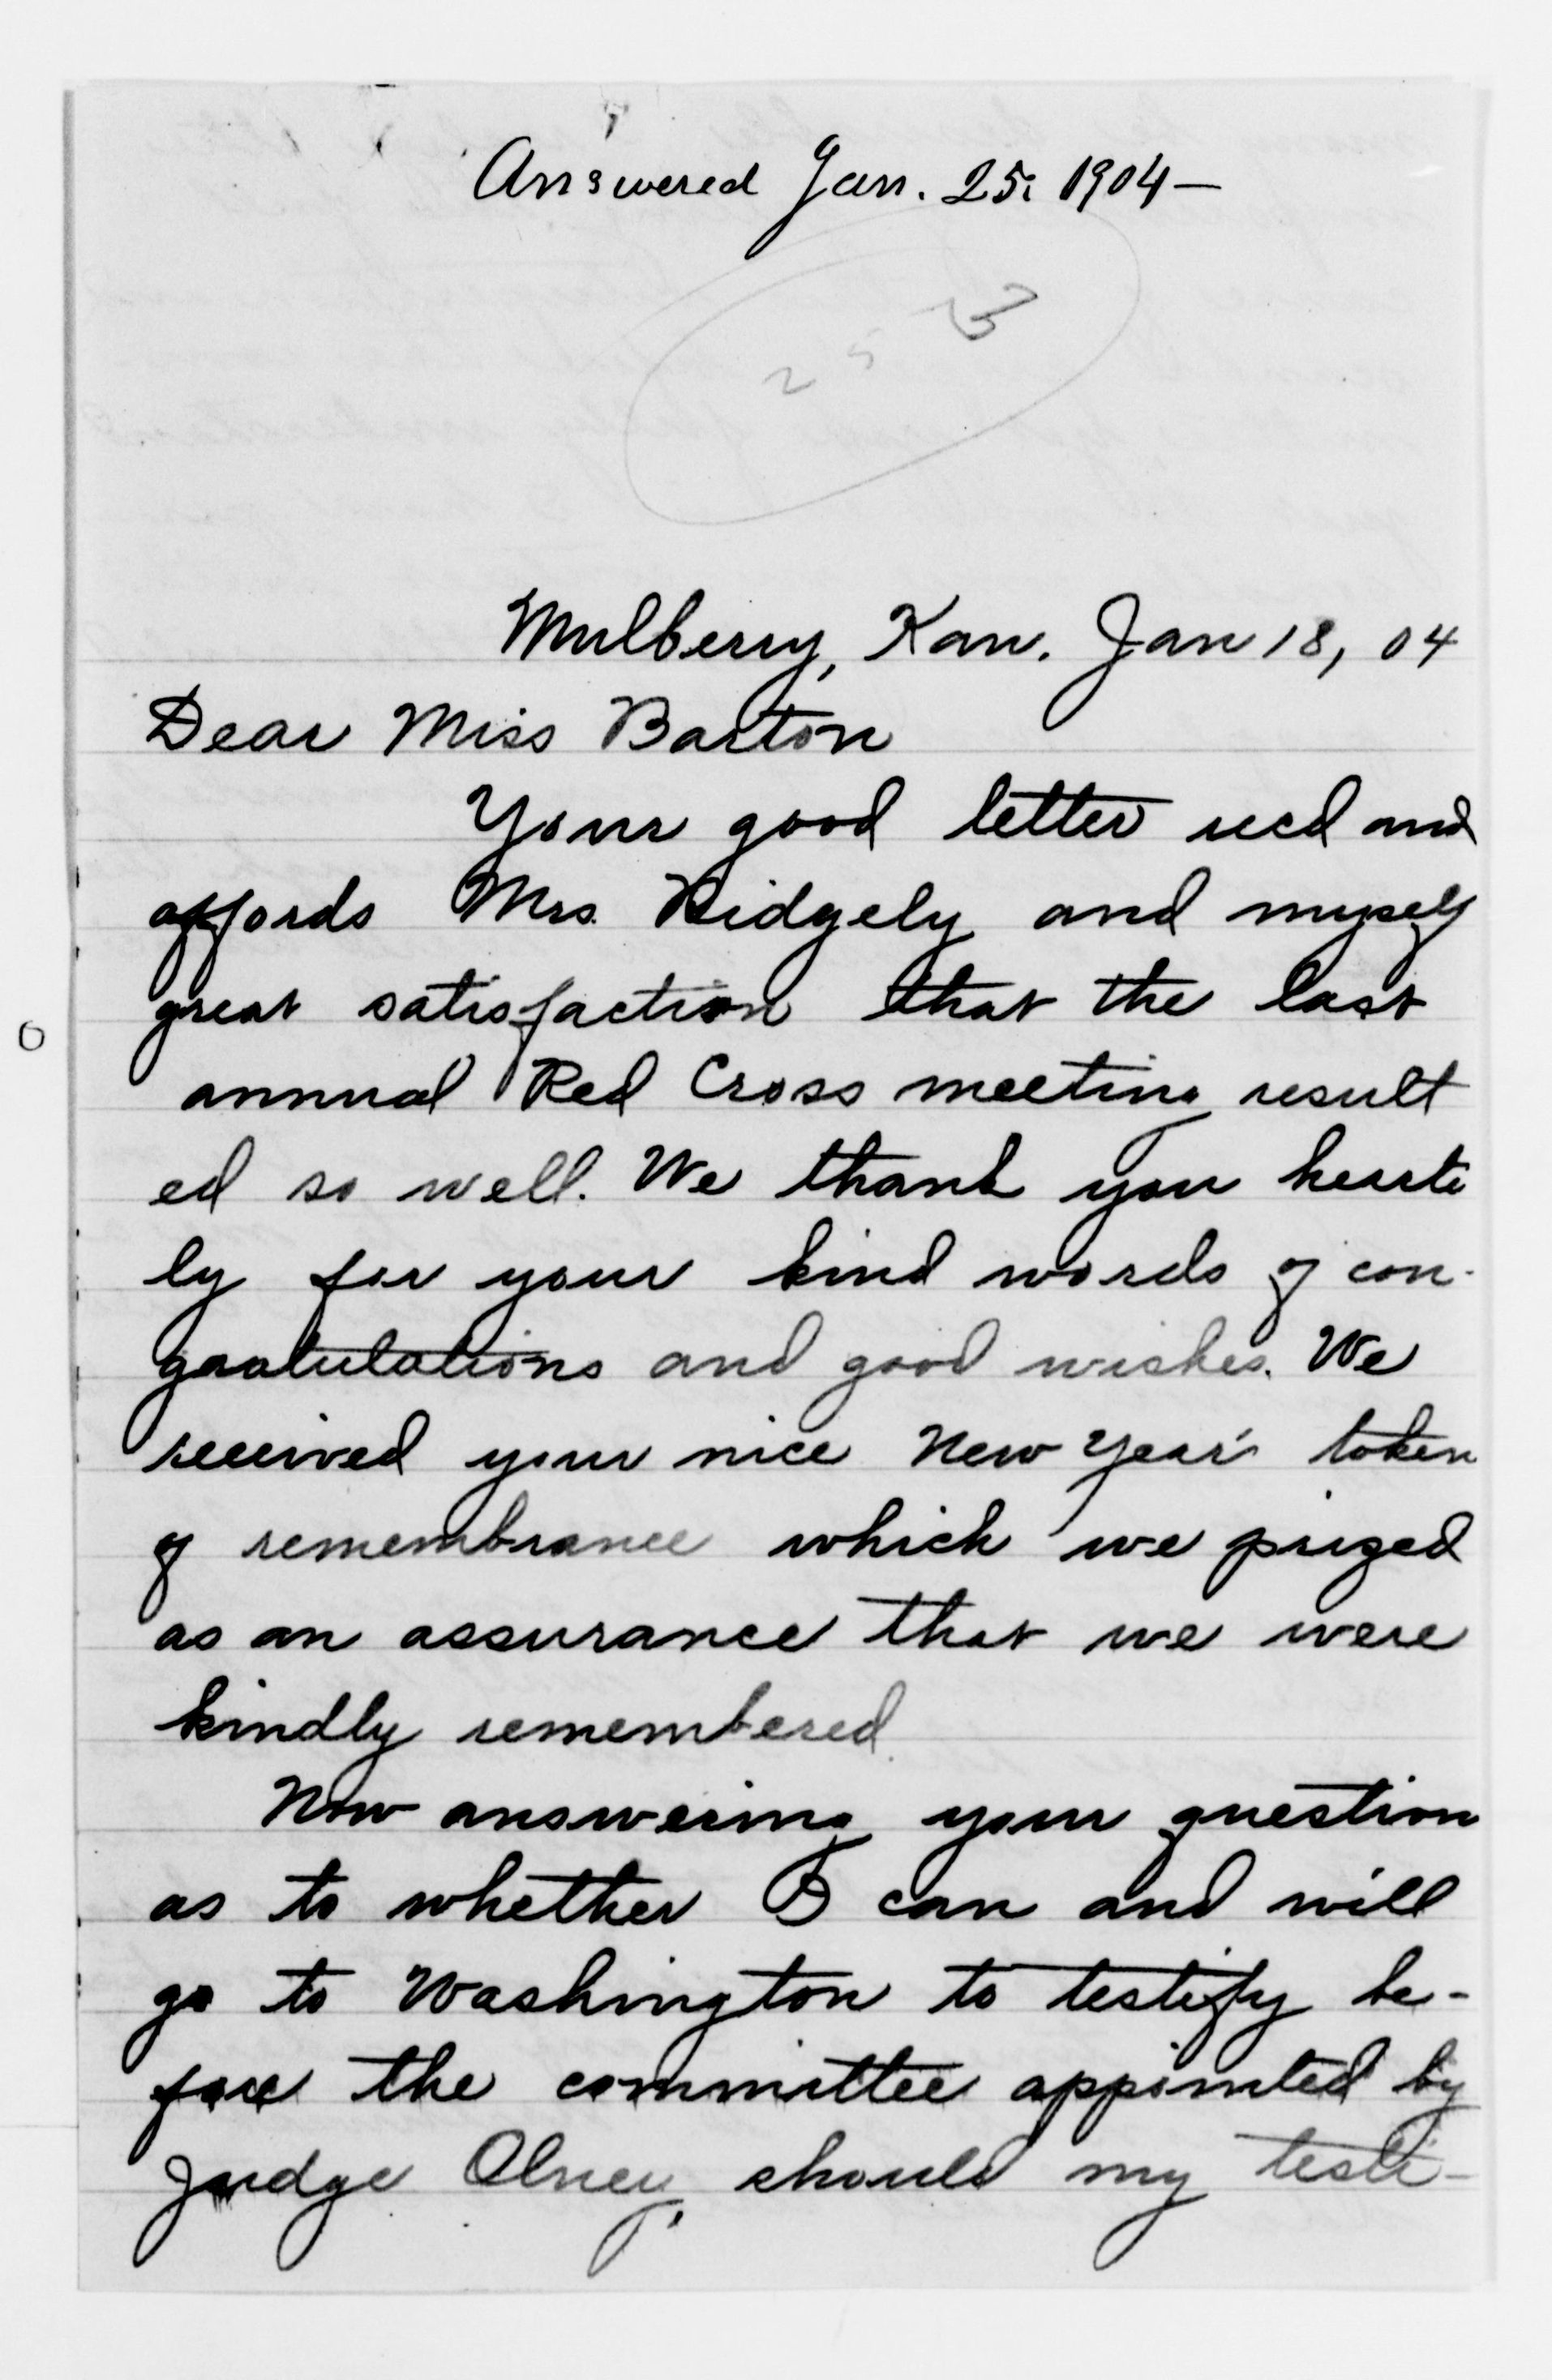 Answered Jan. 25, 1904—
253
Mulberry, Kan. Jan 18, 04
Dear Miss Barton
Your good letter recd and
affords Mrs. Ridgely and myself
great satisfaction that the last
annual Red Cross meeting result
ed so well. We thank you hearti
ly for your kind words of con-
gratulations and good wishes. We
received your nice New Year's token
of remembrance which we prized
as an assurance that we were
kindly remembered.
Now answering your question
as to whether I can and will
go to Washington to testify be-
fore the committee appointed by
Judge Olney, should my testi-